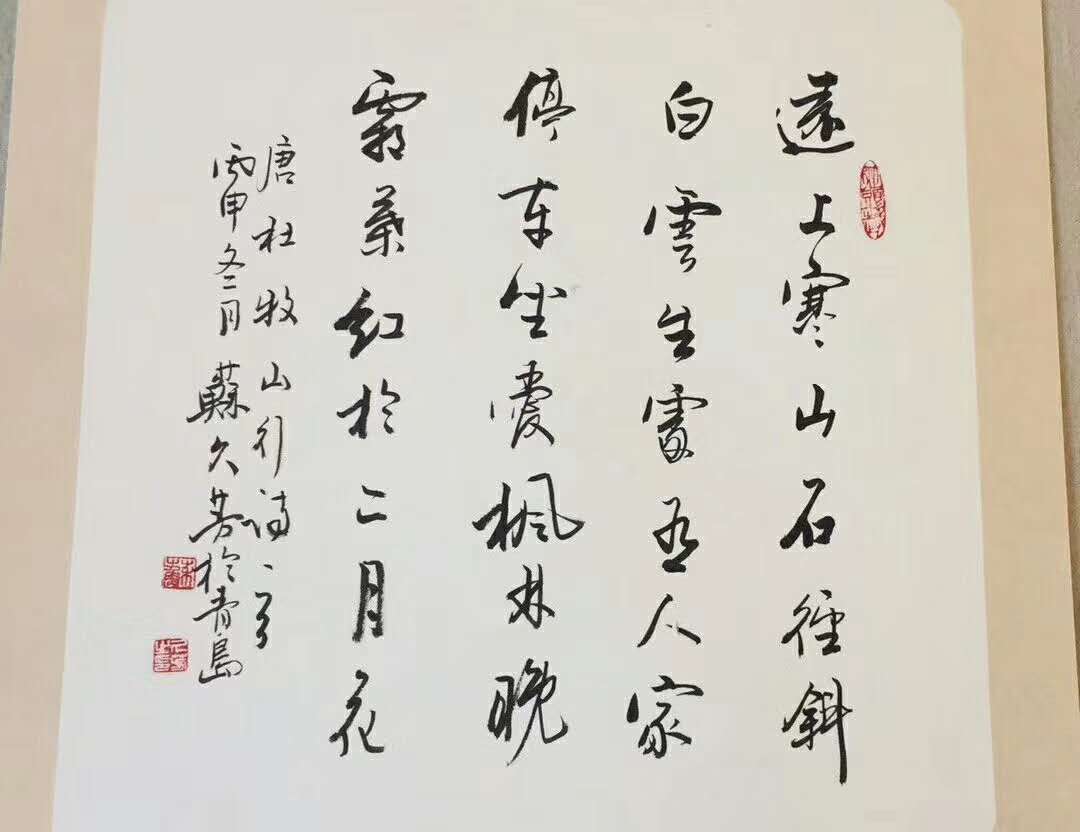 遠上寒山石徑斜
白雲生處有人家
停車坐愛楓林晚
霜葉紅於二月花
唐杜牧山行詩一首
丙申冬月蘇久芳於青島